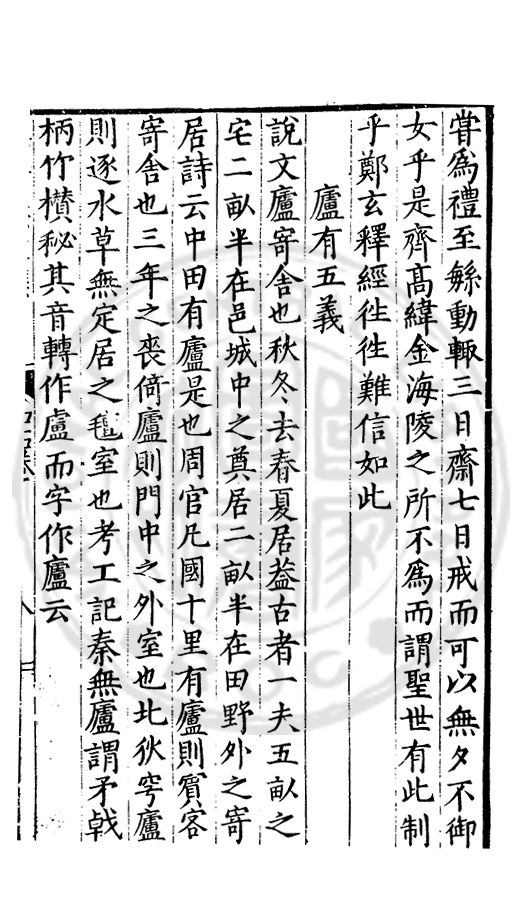 甞為禮至緐動輙三日齋七日戒而可以無夕不御
女乎是齊高緯金海陵之所不為而謂聖世有此制
乎鄭玄釋經徃徃難信如此
廬有五義
說文廬寄舍也秋冬去春夏居葢古者一夫五畝之
宅二畝半在邑城中之奠居二畝半在田野外之寄
居詩云中田有廬是也周官凡國十里有廬則賔客
寄舍也三年之喪倚廬則門中之外室也北狄穹廬
則逐水草無定居之氊室也考工記秦無廬謂矛戟
柄竹欑秘其音轉作盧而字作廬云